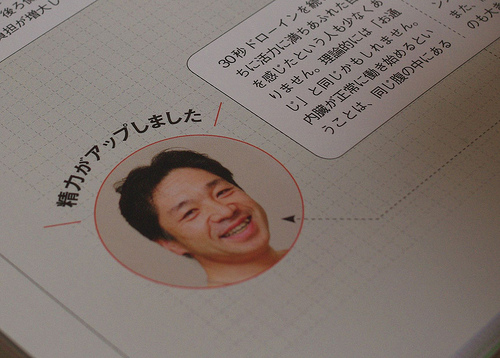 精力がアップしました
30秒ドローインを続
ちに活力に満ちあふれた日
を感じたという人も少なくあ
りません。理論的には「お通
じ」と同じかもしれません。
内臓が正常に働き始めるとい
うことは、同じ腹の中にある
また、
のも大
後ろ
負担が増大し